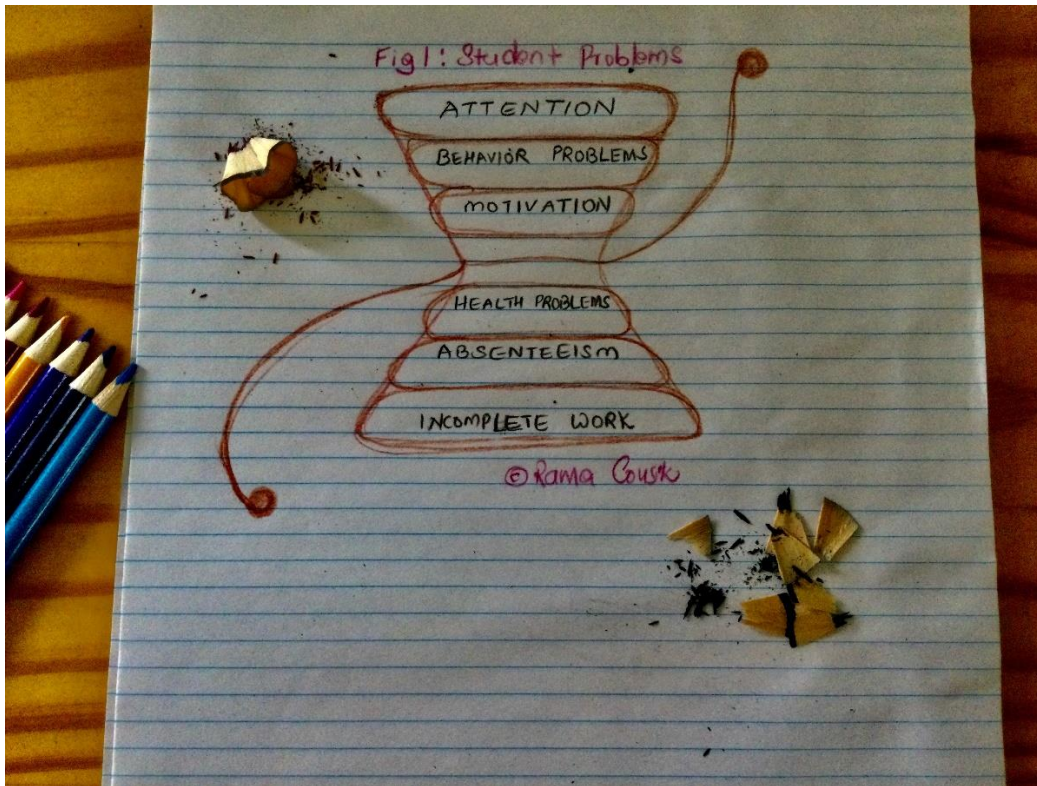 Fig 1: Student Problems
ATTENTION
BEHAVIOR PROBLEMS
MOTIVATION
HEALTH PROBLEMS
ABSENTEEISM
INCOMPLETE WORK
© Rama Cousik